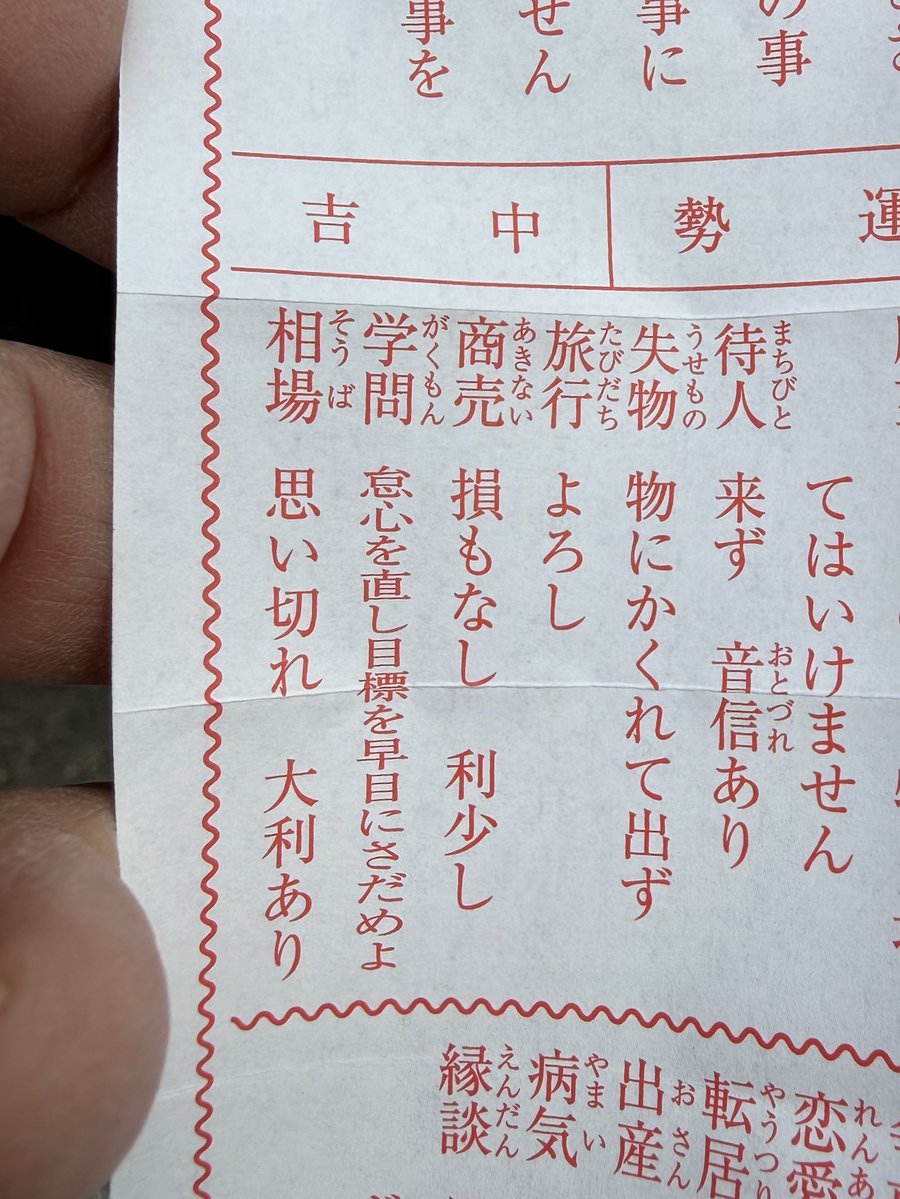 の事
事に
せん
事を
運勢
中吉
てはいけません
待人 まちびと 来ず 音信 おとづれ あり
失物 うせもの 物にかくれて出ず
旅行 たびだち よろし
商売 あきない 損もなし 利少し
学問 がくもん 怠心を直し目標を早目にさだめよ
相場 そうば 思い切れ 大利あり
恋愛 れんあ
転居 やうつり
出産 おさん
病気 やまい
縁談 えんだん